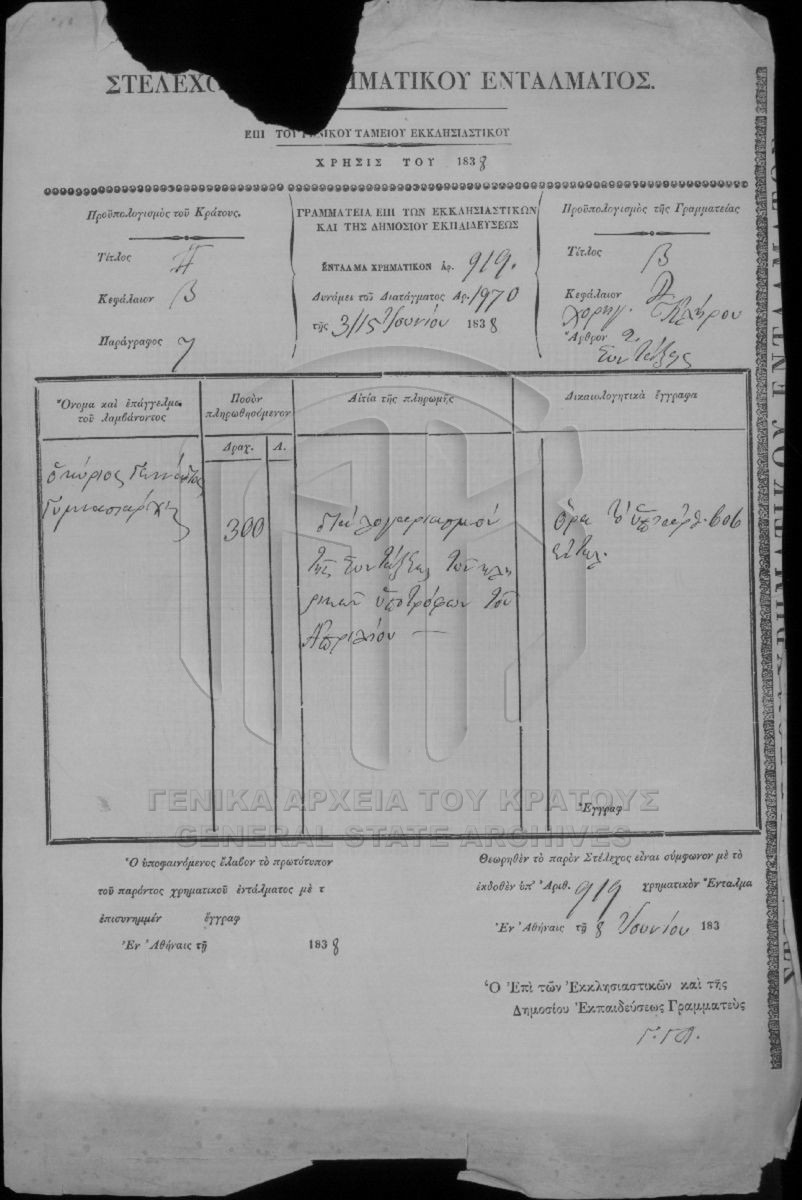 ΣΤΕΛΕΧΟ ΗΜΑΤΙΚΟΥ ΕΝΤΑΛΜΑΤΟΣ.
ΕΠΙ ΤΟΥ ΓΕΝΙΚΟΥ ΤΑΜΕΙΟΥ ΕΚΚΛΗΣΙΑΣΤΙΚΟΥ
ΧΡΗΣΙΣ ΤΟΥ 1838
Προϋπολογισμὸς τοῦ Κράτους.
Τίτλος Π
Κεφάλαιον Β
Παράγραφος 7
ΓΡΑΜΜΑΤΕΙΑ ΕΠΙ ΤΩΝ ΕΚΚΛΗΣΙΑΣΤΙΚΩΝ
ΚΑΙ ΤΗΣ ΔΗΜΟΣΙΟΥ ΕΚΠΑΙΔΕΥΣΕΩΣ
ΕΝΤΑΛΜΑ ΧΡΗΜΑΤΙΚΟΝ Αρ. 919.
Δυνάμει τοῦ Διατάγματος Αρ. 1970
τῆς 3/15 Ἰουνίου 1838
Προϋπολογισμὸς τῆς Γραμματείας
Τίτλος Β
Κεφάλαιον 2
Χορηγ. Κλήρου
Ἄρθρον 2.
Συντάξεις
Ὄνομα καὶ ἐπάγγελμα
τοῦ λαμβάνοντος
Ποσὸν
πληρωθησόμενον
Δραχ. Λ.
Αἰτία τῆς πληρωμῆς
Δικαιολογητικὰ ἔγγραφα
ὁ κύριος Γεννάδιος
Γυμνασιάρχης
300
διὰ λογαριασμὸν
τῆς Συντάξεως τῶν κλη
ρικῶν ὑποτρόφων τοῦ
Ἀπριλίου —
Ὅρα τὸ ὑπ' ἀριθ. 606
ἐνταλ.
Ἐγγραφ
ΓΕΝΙΚΑ ΑΡΧΕΙΑ ΤΟΥ ΚΡΑΤΟΥΣ
GENERAL STATE ARCHIVES
Ὁ ὑποφαινόμενος ἔλαβον τὸ πρωτότυπον
τοῦ παρόντος χρηματικοῦ ἐντάλματος μὲ τ
ἐπισυνημμέν ἔγγραφ
Ἐν Ἀθήναις τῇ 1838
Θεωρηθὲν τὸ παρὸν Στέλεχος εἶναι σύμφωνον μὲ τὸ
ἐκδοθὲν ὑπ' Ἀριθ. 919 χρηματικὸν Ἔνταλμα
Ἐν Ἀθήναις τῇ 8 Ἰουνίου 183
Ὁ Ἐπὶ τῶν Ἐκκλησιαστικῶν καὶ τῆς
Δημοσίου Ἐκπαιδεύσεως Γραμματεὺς